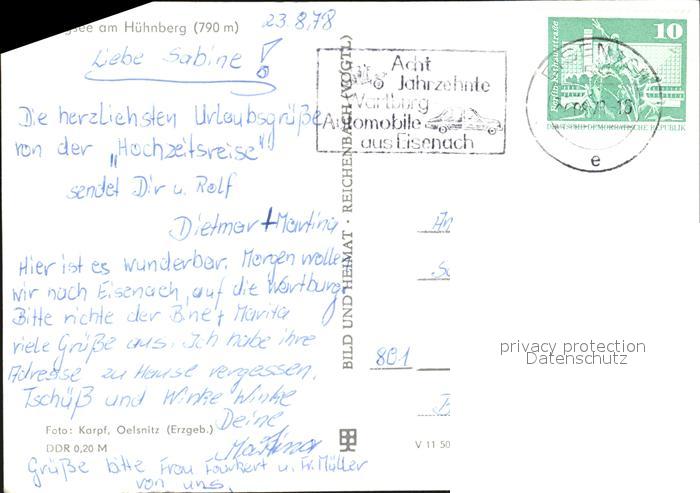 see am Hühnberg (790 m)
23.8.78
Liebe Sabine!
Die herzliehsten Urlaubsgrüße
von der "Hochzeitsreise"
sendet Dir u. Rolf
Dietmar + Martina
Hier ist es wunderbar. Morgen wollen
wir nach Eisenach, auf die Wartburg.
Bitte richte der B. ne + Marita
viele Grüße aus. Ich habe ihre
Adresse zu Hause vergessen.
Tschüß und Winke Winke
Deine
Martina
Foto: Karpf, Oelsnitz (Erzgeb.)
DDR 0,20 M
Grüße bitte Frau u. Fr. Müller
von uns.
BILD UND HEIMAT · REICHENBACH (VOGTL)
V 11 50
Acht
Jahrzehnte
Wartburg
Automobile
aus Eisenach
10
DEUTSCHE DEMOKRATISCHE REPUBLIK
e
801
privacy protection
Datenschutz